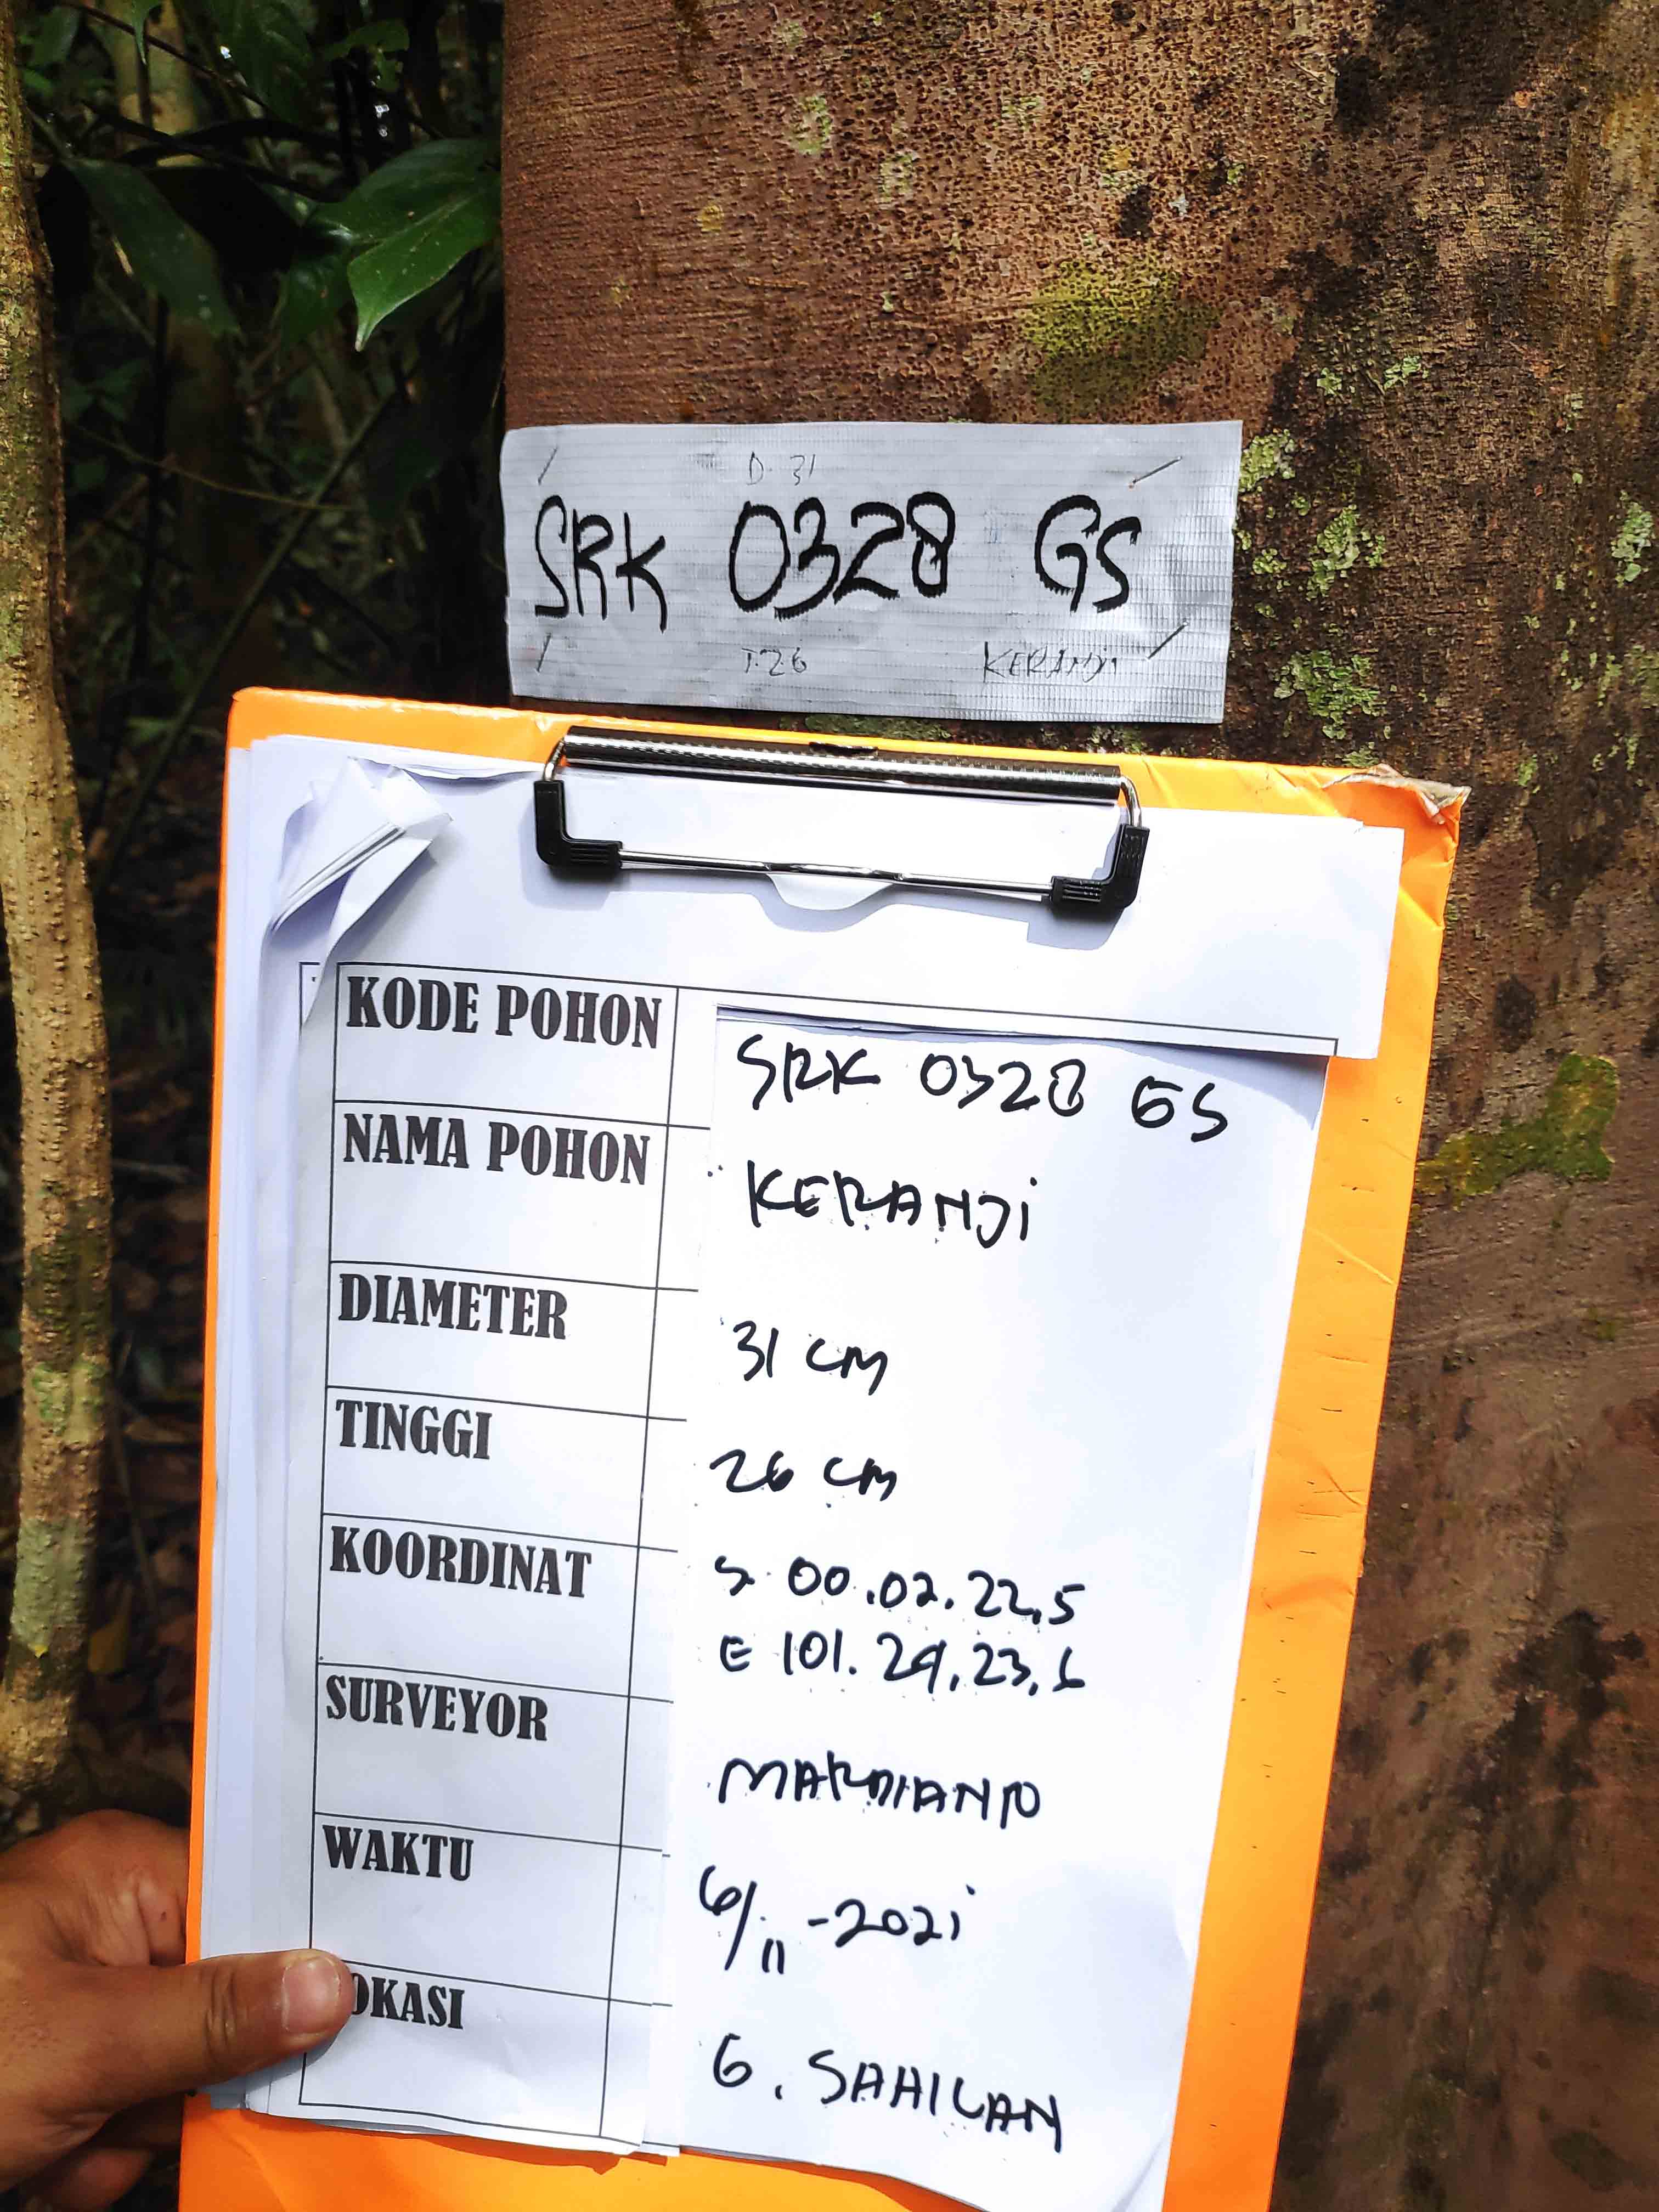 D. 31
SRK 0328 GS
T. 26 KERANJI
KODE POHON SRK 0328 GS
NAMA POHON KERANJI
DIAMETER 31 CM
TINGGI 26 CM
KOORDINAT S 00.02.22,5
E 101.29.23,6
SURVEYOR MARDIANTO
WAKTU 6/11-2021
OKASI G. SAHILAN